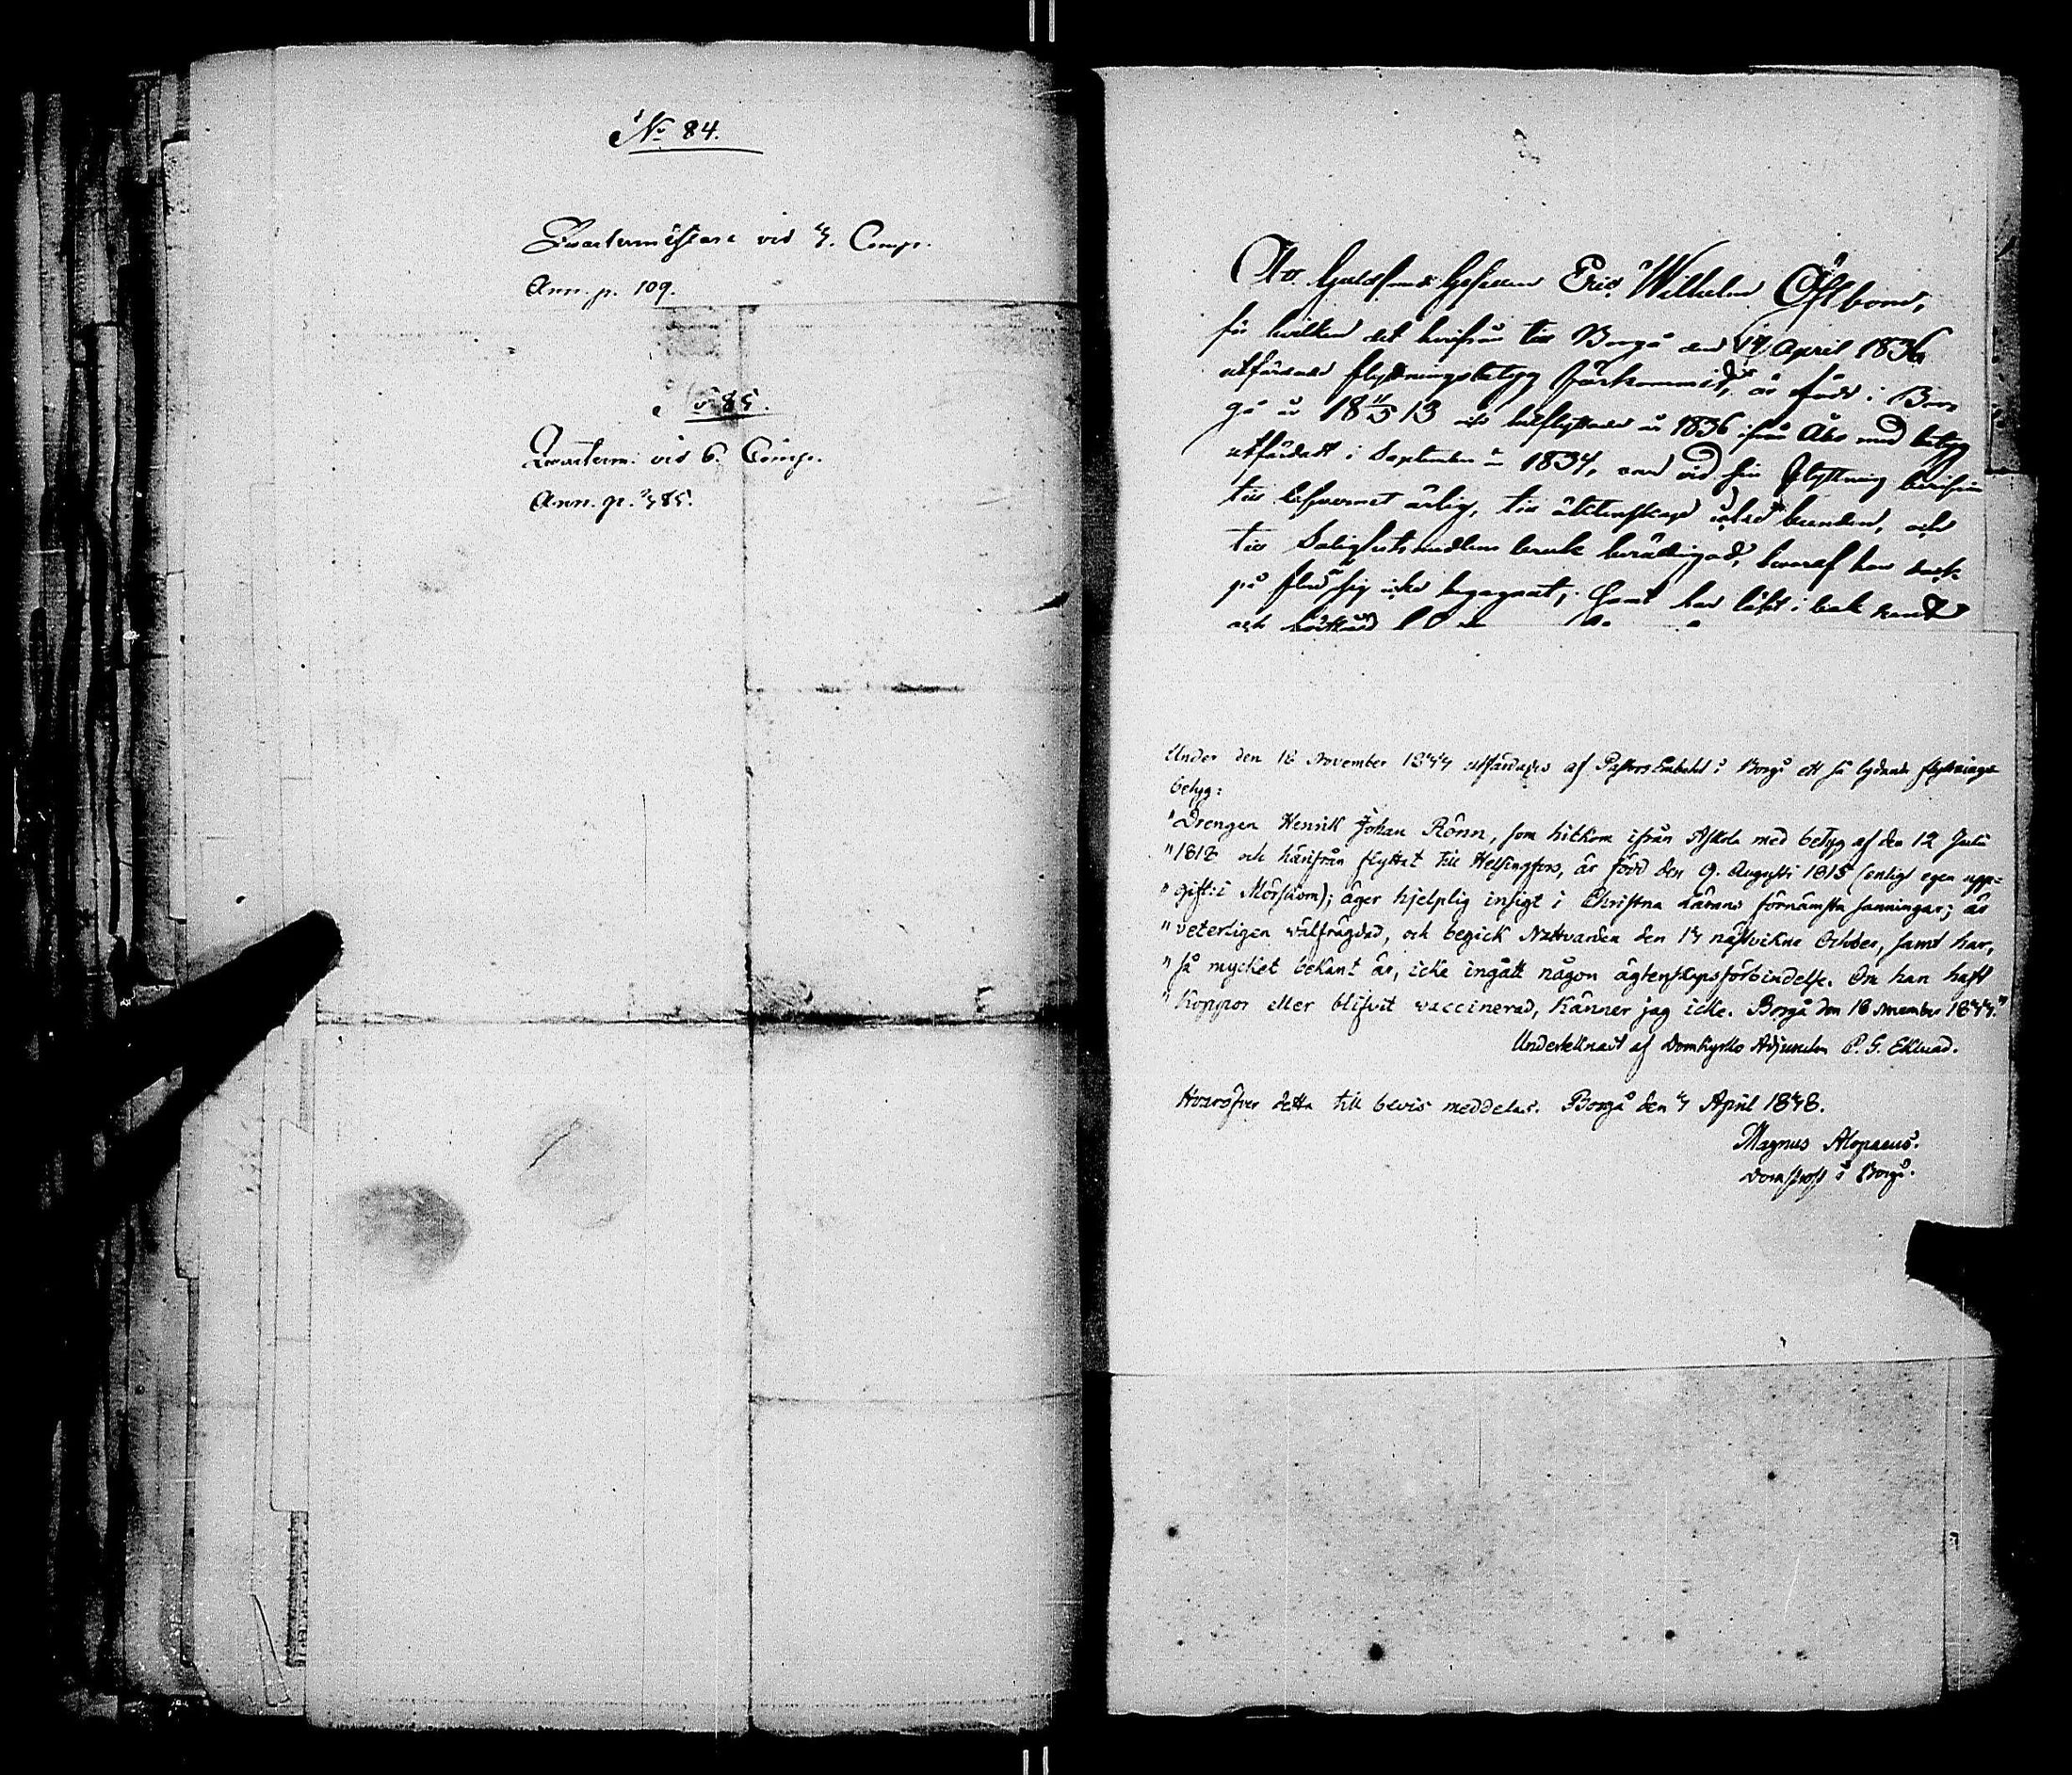 No 84.
Quartermästare vid 4. Comp.
Ann. p. 109.
No 85.
Quarterm. vid 6. Comp.
Ann. p. 485.
Att Guldsmeds Gesällen Eric Wilhelm Östbom,
för hvilken det härifrån till Borgå den 17 April 1836
utfärdade flyttningsbetyg förkommit, är född i Bor-
gå år 18 11/5 13 och tillflyttade år 1836 ifrån Åbo med betyg
utfärdadt i September 1834, var vid sin flyttning härifrån
till lefvernet ärlig, till äktenskap icke bunden, och
till Salighetsmedlens bruk berättigad, hvaraf han dock
på sig icke begagnat; samt har läst i bok
och
Under den 18 November 1844 utfärdades af PastorsEmbetet i Borgå ett så lydande flyttnings-
betyg:
"Drengen Henrik Johan Rönn, som hitkom ifrån Askola med betyg af den 12 Julii
"1818 och härifrån flyttat till Helsingfors, är född den 9. Augusti 1815 (enligt egen upp-
"gift: i Mörskom); äger hjelplig insigt i Christna Lärans förnämsta sanningar; är
"veterligen välfrägdad, och begick Nattvarden den 14 nästvikne October, samt har,
"så mycket bekant är, icke ingått någon ägtenskapsförbindelse. Om han haft
"Koppor eller blifvit vaccinerad, känner jag icke. Borgå den 18 November 1844."
Undertecknadt af Domkyrko Adjuncten C. G. Eklund.
Hvaröfver detta till bevis meddelas. Borgå den 4 April 1848.
Magnus Alopaeus.
Domprost i Borgå.